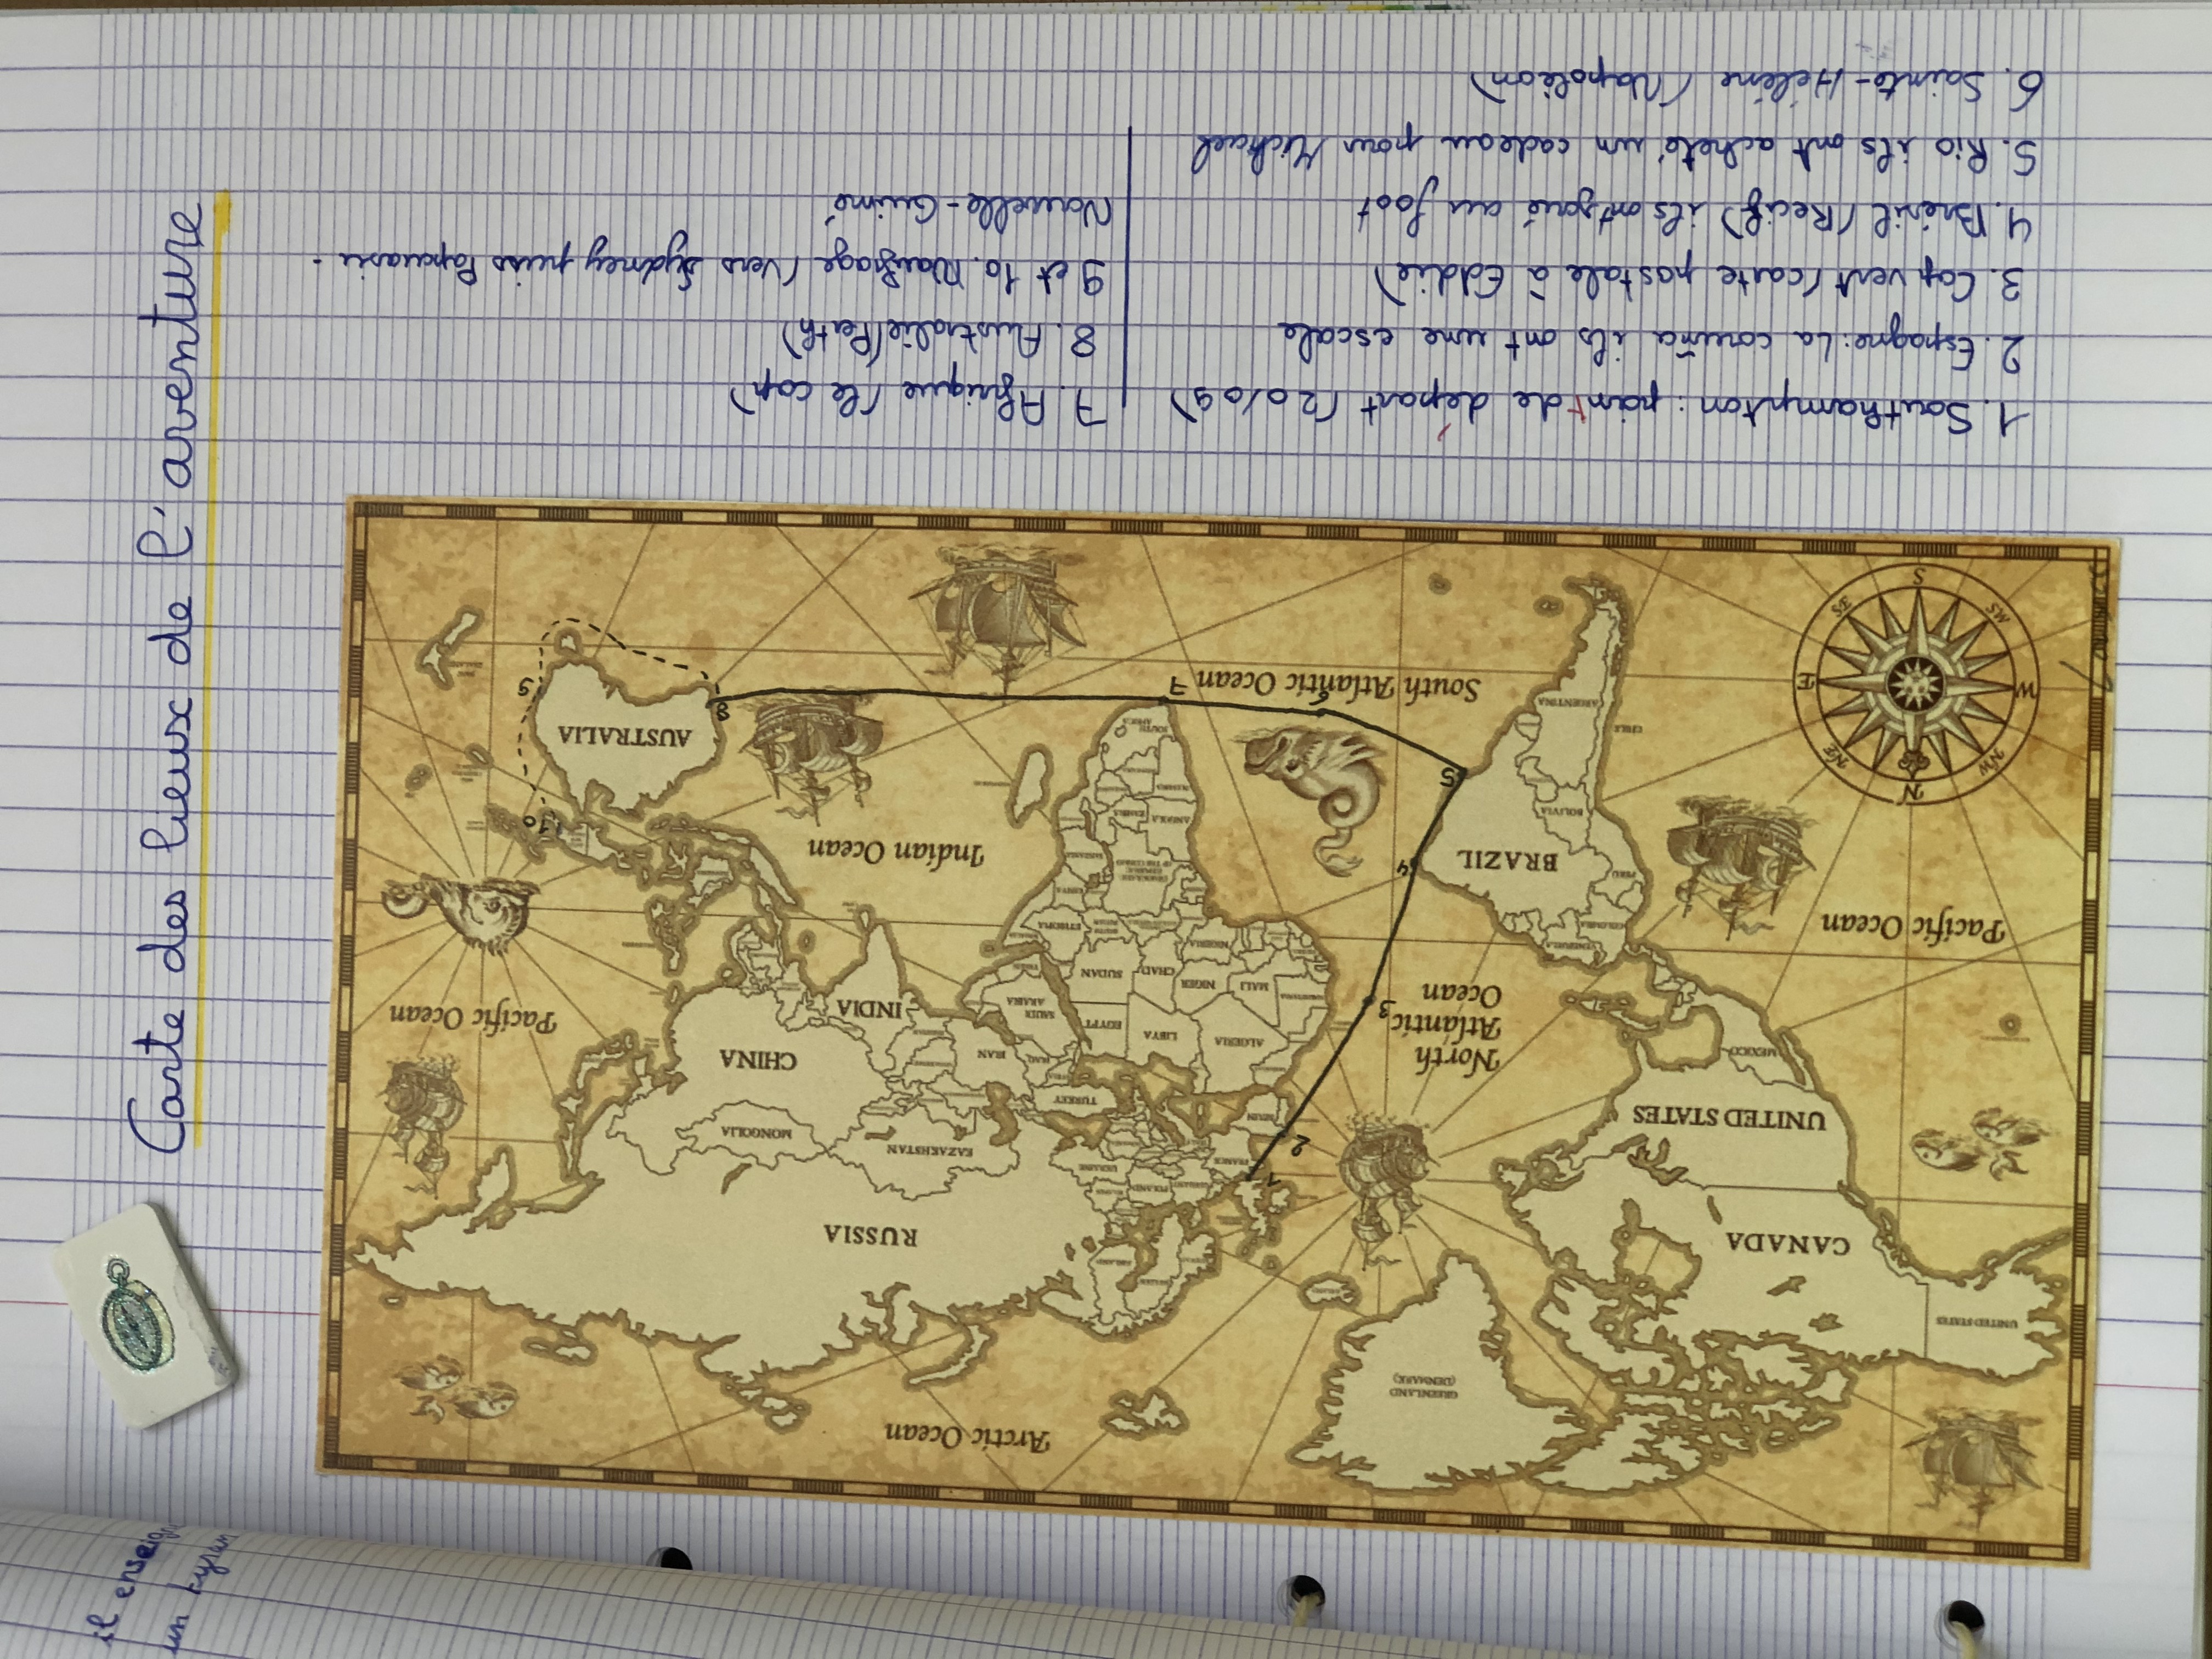 Carte des lieux de l'aventure
Arctic Ocean
GREENLAND
(DENMARK)
UNITED STATES
CANADA
RUSSIA
UNITED STATES
MEXICO
North
Atlantic
Ocean
Pacific Ocean
FRANCE
SPAIN
POLAND
UKRAINE
TURKEY
KAZAKHSTAN
MONGOLIA
CHINA
Pacific Ocean
ALGERIA
LIBYA
EGYPT
SAUDI
ARABIA
IRAQ
IRAN
INDIA
MALI
NIGER
CHAD
SUDAN
NIGERIA
ETHIOPIA
VENEZUELA
COLOMBIA
PERU
BRAZIL
BOLIVIA
ANGOLA
Indian Ocean
CHILE
ARGENTINA
South Atlantic Ocean
SOUTH
AFRICA
AUSTRALIA
N
NW
NE
W
E
SW
SE
S
1
2
3
4
5
6
7
8
9
10
1. Southampton : point de départ (20/09)
2. Espagne : La coruña ils ont une escale
3. Cap vert (carte postale à Eddie)
4. Brésil (Recif) ils ont joué au foot
5. Rio ils ont acheté un cadeau pour Michael
6. Sainte-Hélène (Napoléon)
7. Afrique (le cap)
8. Australie (Perth)
9 et 10. Naufrage (vers Sydney puis Papouasie -
Nouvelle-Guinné
il enseign
un